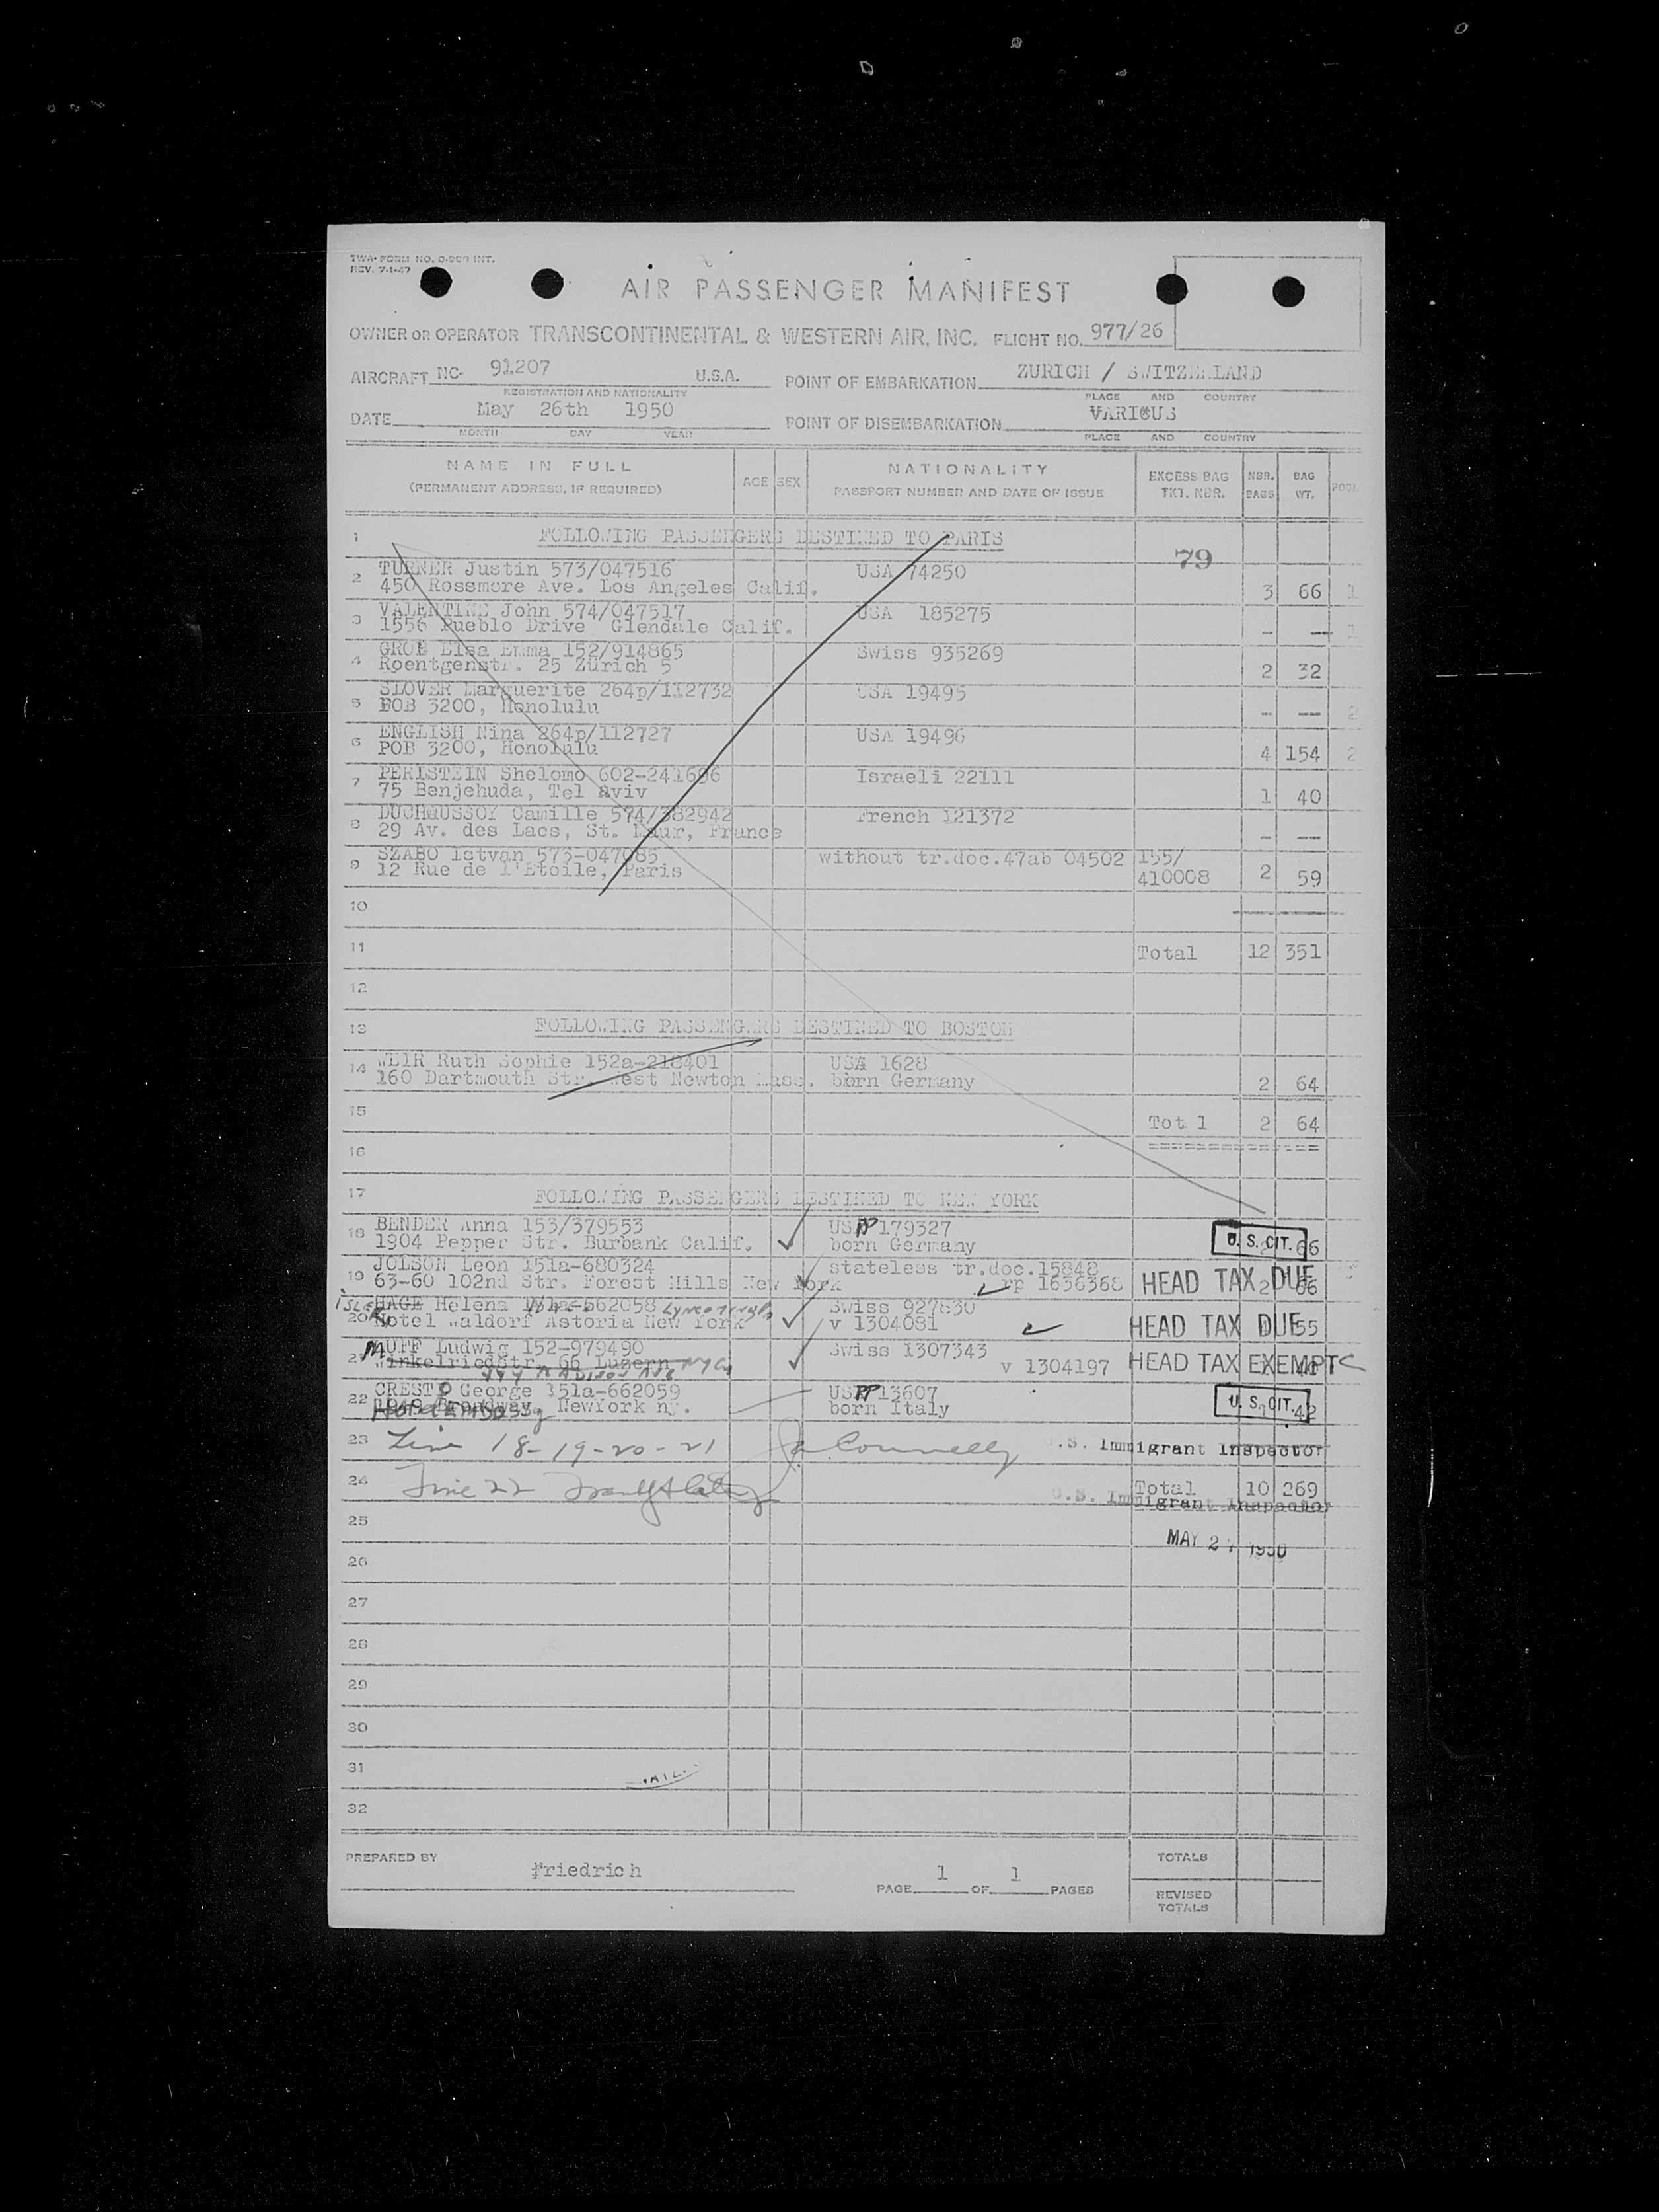 TWA- FORM NO. O-909 INT.
REV. 7-1-47
AIR PASSENGER MANIFEST
OWNER OR OPERATOR TRANSCONTINENTAL & WESTERN AIR, INC. FLIGHT NO. 977/26
AIRCRAFT NC- 91207 U.S.A. POINT OF EMBARKATION ZURICH / SWITZERLAND
REGISTRATION AND NATIONALITY PLACE AND COUNTRY
DATE May 26th 1950 POINT OF DISEMBARKATION VARIOUS
MONTH DAY YEAR PLACE AND COUNTRY
NAME IN FULL AGE SEX NATIONALITY EXCESS BAG NBR. BAG
(PERMANENT ADDRESS, IF REQUIRED) PASSPORT NUMBER AND DATE OF ISSUE TKT. NBR. BAGS WT.
1 FOLLOWING PASSENGERS DESTINED TO PARIS
79
2 TURNER Justin 573/047516 USA 74250
450 Rossmore Ave. Los Angeles Calif. 3 66 1
3 VALENTINE John 574/047517 USA 185275
1556 Pueblo Drive Glendale Calif. -- -- 1
4 GROB Elsa Emma 152/914865 Swiss 935269
Roentgenstr. 25 Zürich 5 2 32
5 SLOVER Marguerite 264p/112732 USA 19495
BOB 3200, Honolulu -- -- 2
6 ENGLISH Nina 264p/112727 USA 19496
POB 3200, Honolulu 4 154 2
7 PERISTEIN Shelomo 602-241696 Israeli 22111
75 Benjehuda, Tel aviv 1 40
8 DUCHAUSSOY Camille 574/382942 French 121372
29 Av. des Lacs, St. Maur, France -- --
9 SZABO Istvan 573-047085 without tr.doc.47ab 04502 155/
12 Rue de l'Etoile, Paris 410008 2 59
10
11 Total 12 351
12
13 FOLLOWING PASSENGERS DESTINED TO BOSTON
14 WEIR Ruth Sophie 152a-218401 USA 1628
160 Dartmouth Str. West Newton Mass. born Germany 2 64
15 Tot l 2 64
16 =============
17 FOLLOWING PASSENGERS DESTINED TO NEW YORK
18 BENDER Anna 153/379553 US PP 179327
1904 Pepper Str. Burbank Calif. born Germany U. S. CIT. 66
19 JOLSON Leon 151a-680324 stateless tr.doc.15848
63-60 102nd Str. Forest Hills New York rp 1636368 HEAD TAX DUE 2 66
20 HAGE Helena 151a-662058 Swiss 927830
Hotel Waldorf Astoria New York v 1304081 HEAD TAX DUE 55
21 MUFF Ludwig 152-979490 Swiss 1307343
Winkelriedstr. 66 Luzern NYC v 1304197 HEAD TAX EXEMPT
444 MADISON AVE
22 CRESTO George 151a-662059 US PP 13607
Broadway, NewYork ny. born Italy U. S. CIT. 42
Hotel Embassy
23 Line 18-19-20-21 Connelly U.S. Immigrant Inspector
24 Line 22 Total 10 269
U.S. Immigrant Inspector
25
MAY 27 1950
26
27
28
29
30
31
32
PREPARED BY Friedrich PAGE 1 OF 1 PAGES TOTALS
REVISED
TOTALS